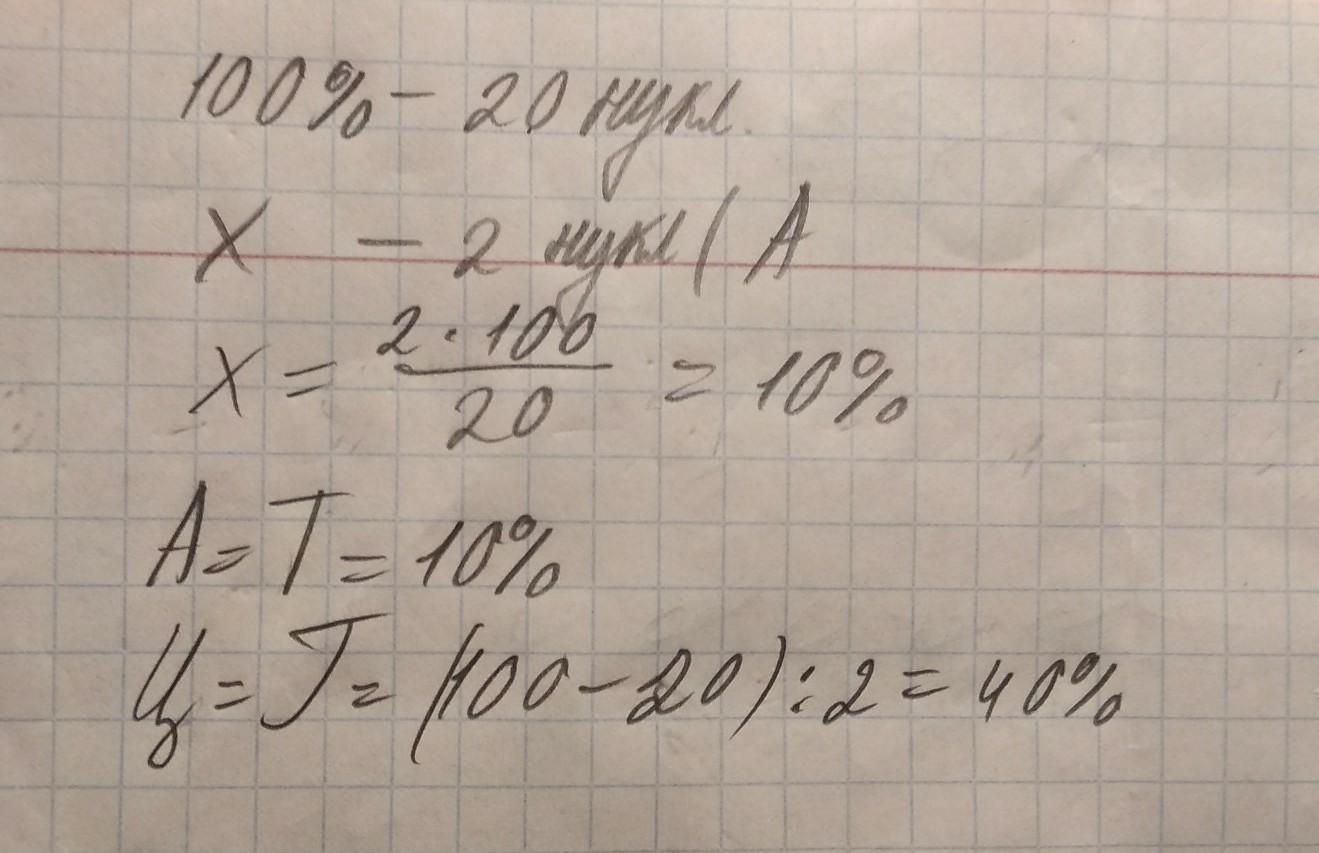 100% - 20 нукл.
X - 2 нукл ( А
X = 2 · 100 / 20 = 10%
А = Т = 10%
Ц = Г = (100 - 20) : 2 = 40%